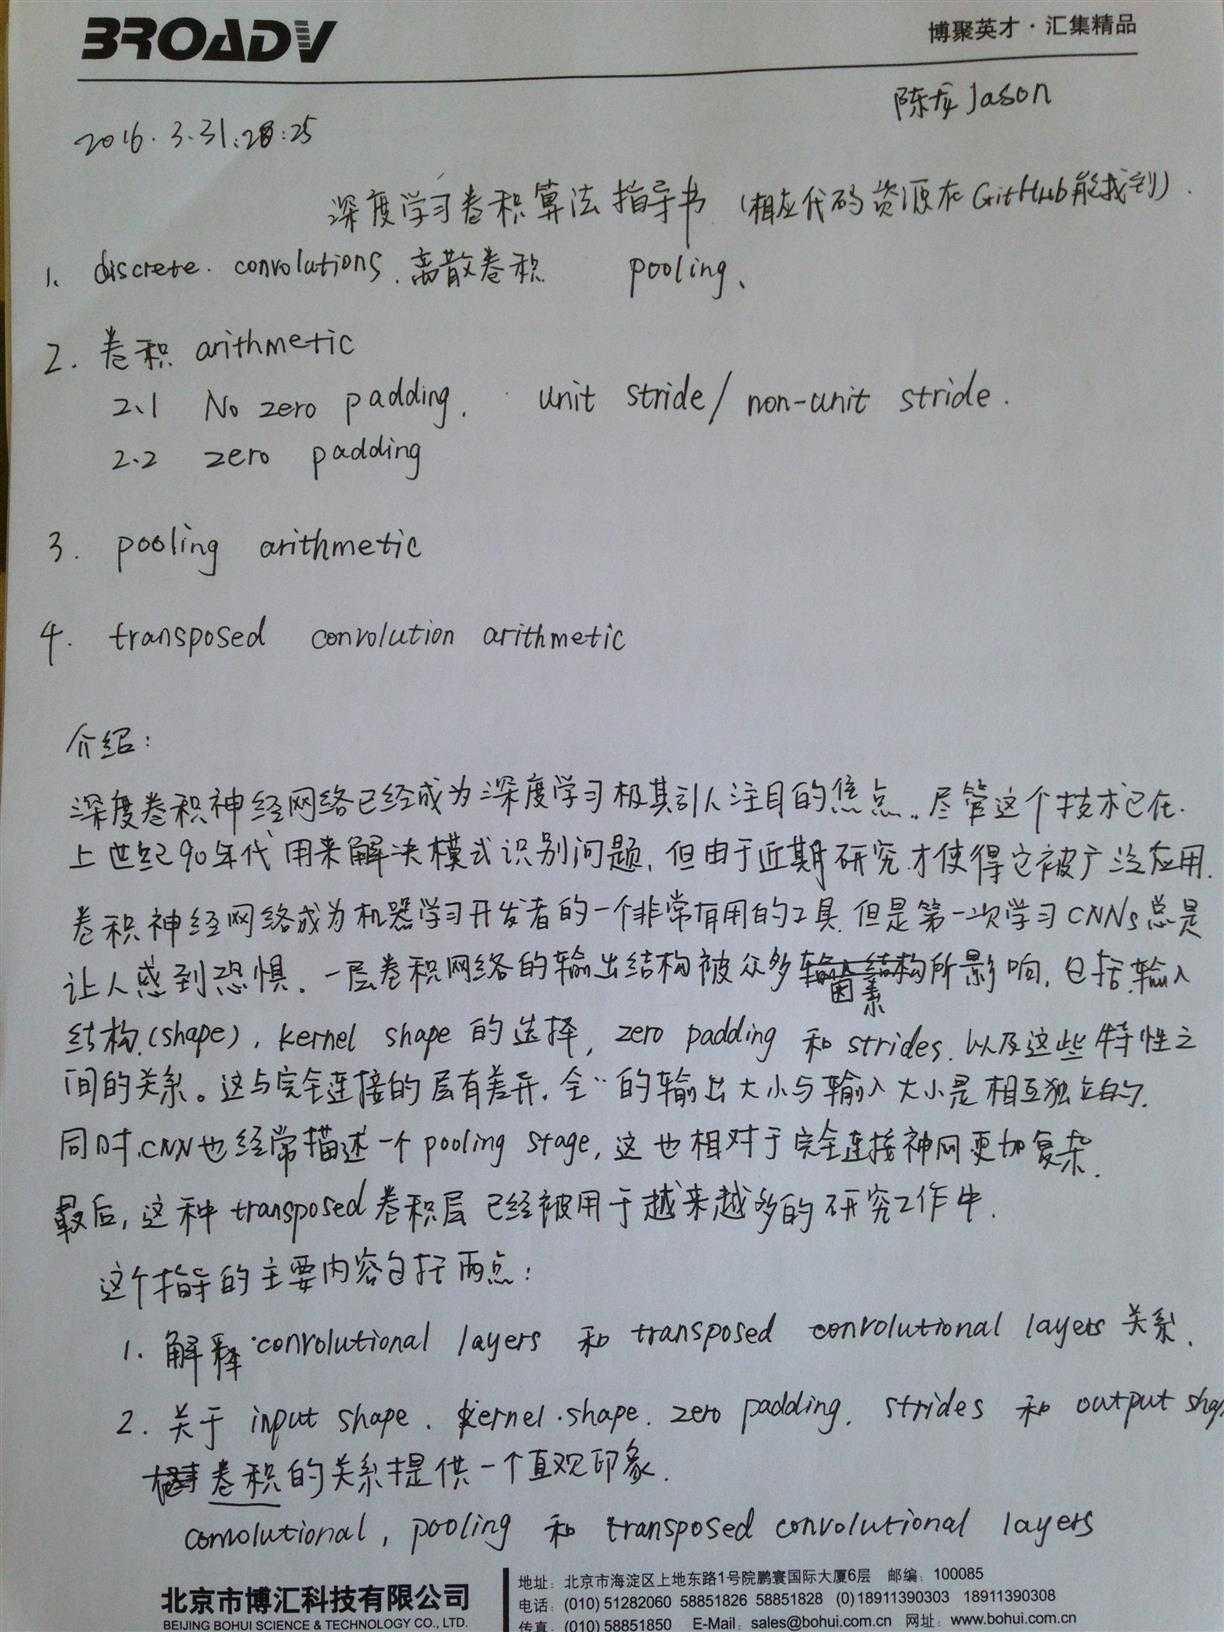 BROADV
博聚英才·汇集精品
陈龙Jason
2016.3.31.20:25
深度学习卷积算法指导书 (相应代码资源在GitHub能找到).
1、discrete. convolutions.离散卷积 pooling、
2. 卷积 arithmetic
2.1 No zero padding. unit stride/ non-unit stride.
2.2 zero padding
3. pooling arithmetic
4. transposed convolution arithmetic
介绍:
深度卷积神经网络已经成为深度学习极其引人注目的焦点..尽管这个技术已在.
上世纪90年代用来解决模式识别问题,但由于近期研究才使得它被广泛应用.
卷积神经网络成为机器学习开发者的一个非常有用的工具.但是第一次学习CNNs总是
让人感到恐惧. 一层卷积网络的输出结构被众多因素所影响,包括.输入
结构.(shape), kernel shape 的选择, zero padding 和 strides.以及这些特性之
间的关系。这与完全连接的层有差异.全〃的输出大小与输入大小是相互独立的.
同时.CNN也经常描述一个pooling stage,这也相对于完全连接神网更加复杂.
最后,这种transposed卷积层已经被用于越来越多的研究工作中.
这个指导的主要内容包括两点:
1. 解释·convolutional layers 和 transposed convolutional layers关系.
2. 关于 input shape. kernel.shape. zero padding. strides 和 output shap
卷积的关系提供一个直观印象.
convolutional, pooling 和 transposed convolutional layers
北京市博汇科技有限公司
BEIJING BOHUI SCIENCE & TECHNOLOGY CO., LTD.
地址:北京市海淀区上地东路1号院鹏寰国际大厦6层 邮编:100085
电话:(010) 51282060 58851826 58851828 (0)18911390303 18911390308
传真:(010) 58851850 E-Mail:sales@bohui.com.cn 网址:www.bohui.com.cn